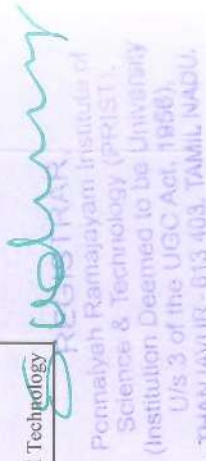 Technology
REGISTRAR
Ponnaiyah Ramajayam Institute of
Science & Technology (PRIST),
(Institution Deemed to be University
U/s 3 of the UGC Act, 1956),
THANJAVUR - 613 403. TAMIL NADU.